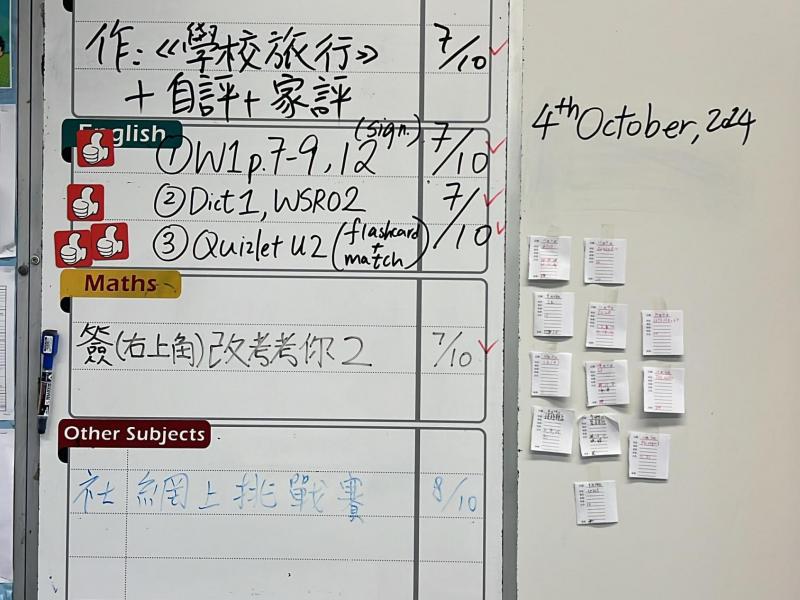 作:《學校旅行》 7/10
+自評+家評
English
(sign.)
①W1p.7-9, 12 7/10
②Dict1, WSR02 7/10
③Quizlet U2 (flashcard + match)
Maths
簽(右上角)改考考你2 7/10
Other Subjects
社 網上挑戰賽 8/10
4th October, 2024